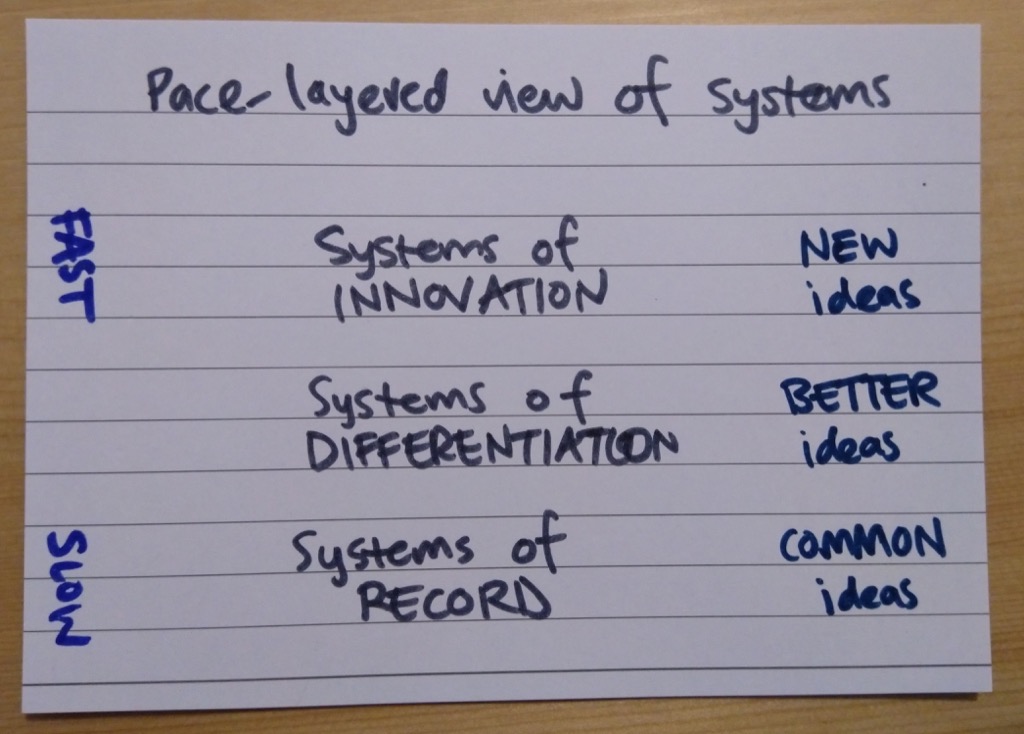 Pace-layered view of systems
FAST
Systems of
INNOVATION
NEW
ideas
Systems of
DIFFERENTIATION
BETTER
ideas
SLOW
Systems of
RECORD
COMMON
ideas